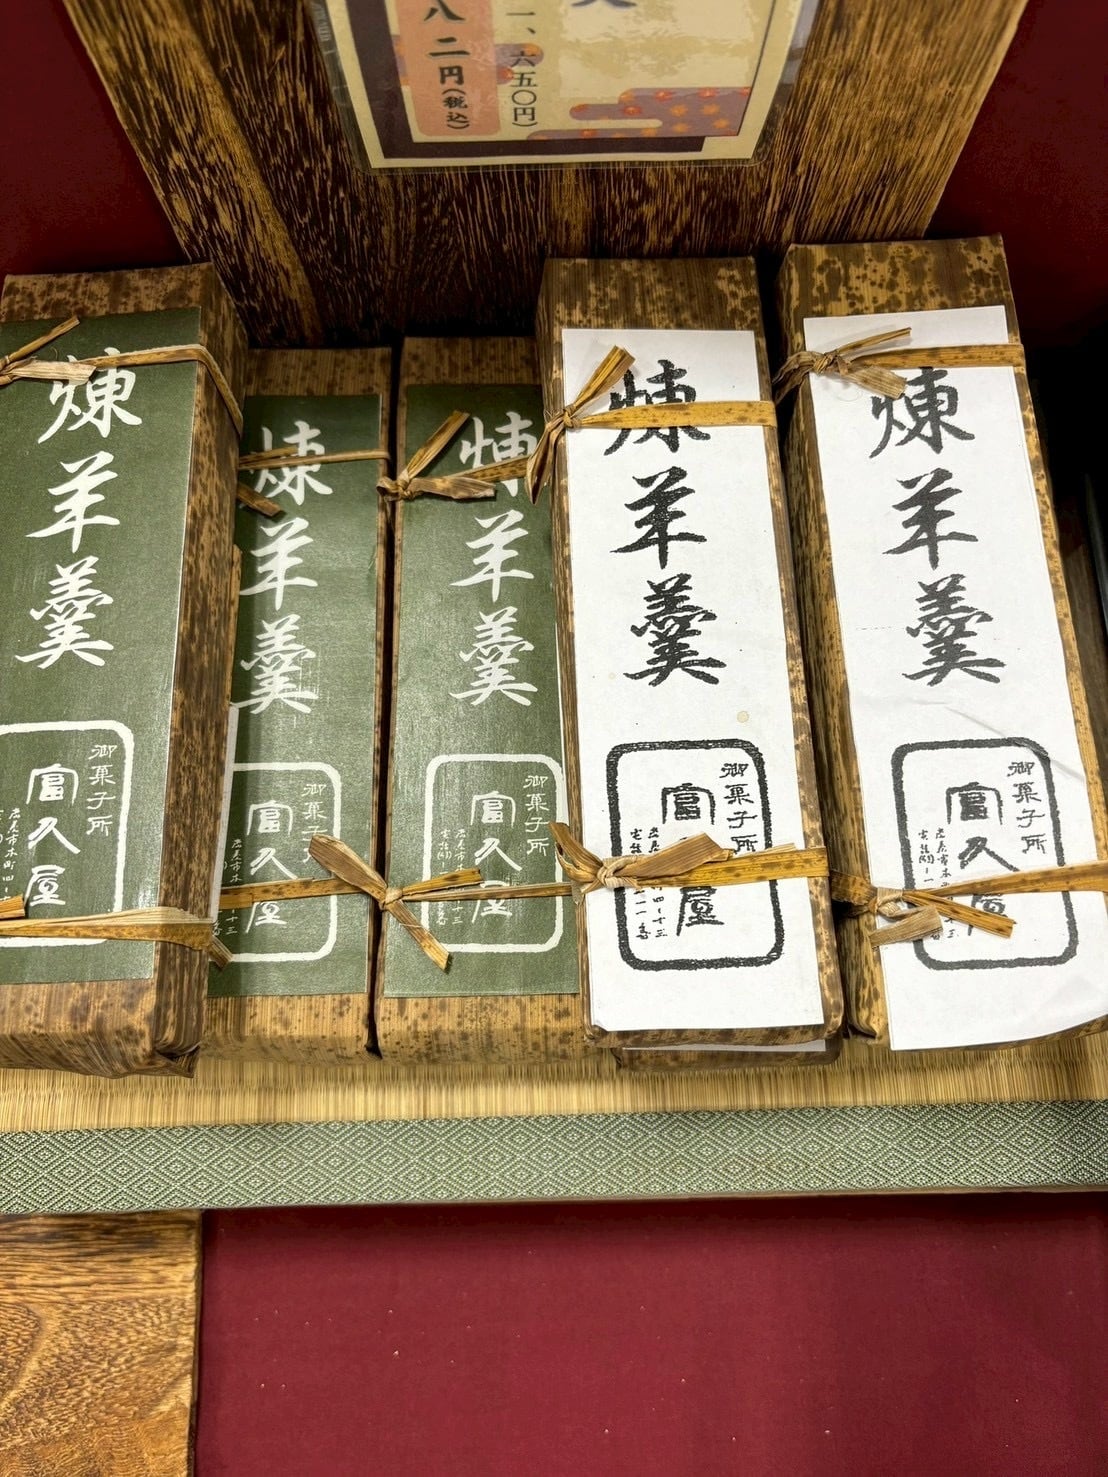 一、六五〇円)
八二円(税込)
煉羊羹
御菓子所
富久屋
煉羊羹
御菓子所
富久屋
煉羊羹
御菓子所
富久屋
煉羊羹
御菓子所
富久屋
煉羊羹
御菓子所
富久屋